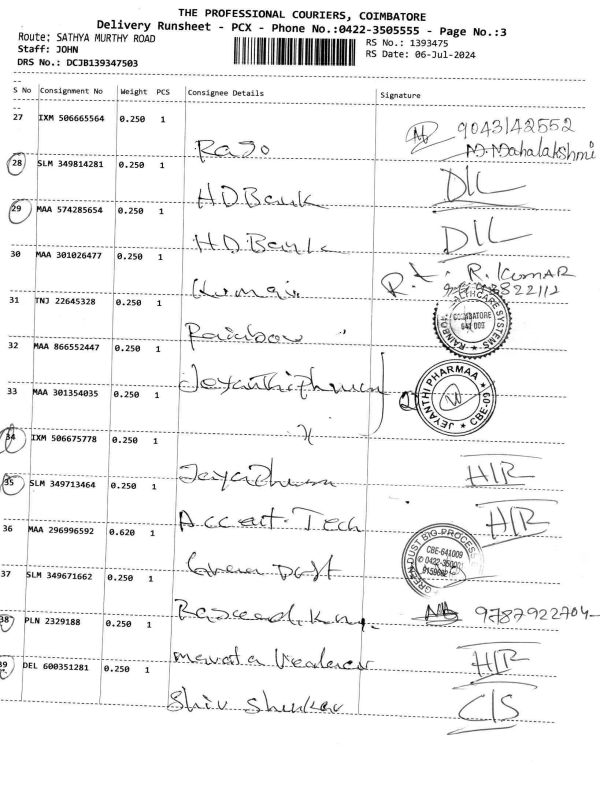 THE PROFESSIONAL COURIERS, COIMBATORE
Delivery Runsheet - PCX - Phone No.:0422-3505555 - Page No.:3
Route: SATHYA MURTHY ROAD
RS No.: 1393475
Staff: JOHN
RS Date: 06-Jul-2024
DRS No.: DCJB139347503
S No Consignment No Weight PCS Consignee Details Signature
27 IXM 506665564 0.250 1 9043142552
Mahalakshmi
28 SLM 349814281 0.250 1 H.D.Bank D/L
29 MAA 574285654 0.250 1 H.D.Bank D/L
30 MAA 301026477 0.250 1 Kumar R. KUMAR
31 TNJ 22645328 0.250 1 Rainbow
COIMBATORE
32 MAA 866552447 0.250 1 Jeyanthi Pharma
JEYANTHI PHARMAA CBE-09
33 MAA 301354035 0.250 1 "
34 IXM 506675778 0.250 1 H/R
35 SLM 349713464 0.250 1 Tech H/R
36 MAA 296996592 0.620 1 Green Dust
GREEN DUST BIG-PROCESS
CBE-641009
37 SLM 349671662 0.250 1 9787922704
38 PLN 2329188 0.250 1 H/R
39 DEL 600351281 0.250 1 Shiv Shankar C/S